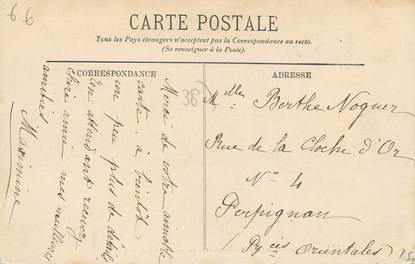 66
CARTE POSTALE
Tous les Pays étrangers n'acceptent pas la Correspondance au recto.
(Se renseigner à la Poste).
CORRESPONDANCE
Merci de votre aimable
carte. à bientôt
un peu plus de détails
En attendant recevez
chère amie mes meilleures
amitiés
Maximine
38
ADRESSE
Melles Berthe Noguer
Rue de la Cloche d'Or
No 4
Perpignan
Pycis Orientales